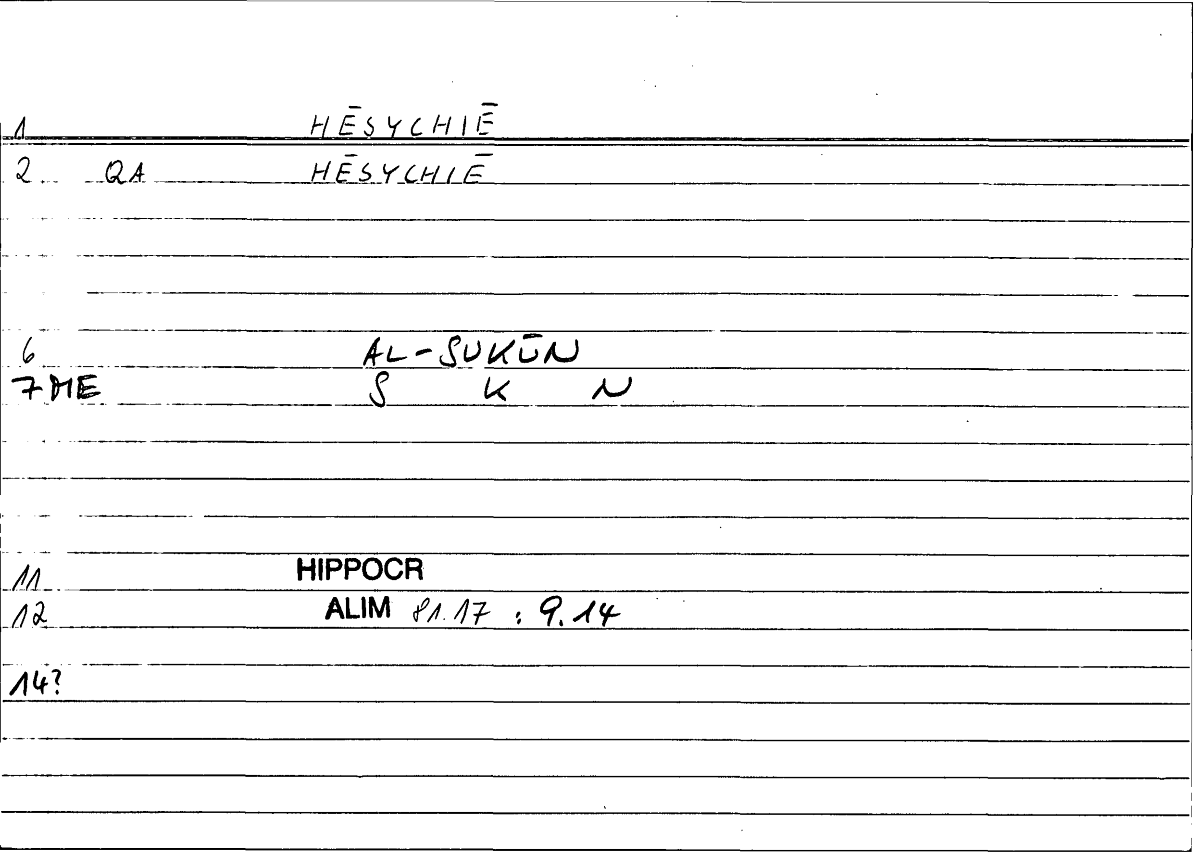 1 HĒSYCHIĒ
2 QA HĒSYCHIĒ
6 AL-SUKŪN
7 ME S K N
11 HIPPOCR
12 ALIM 81.17 : 9.14
14?